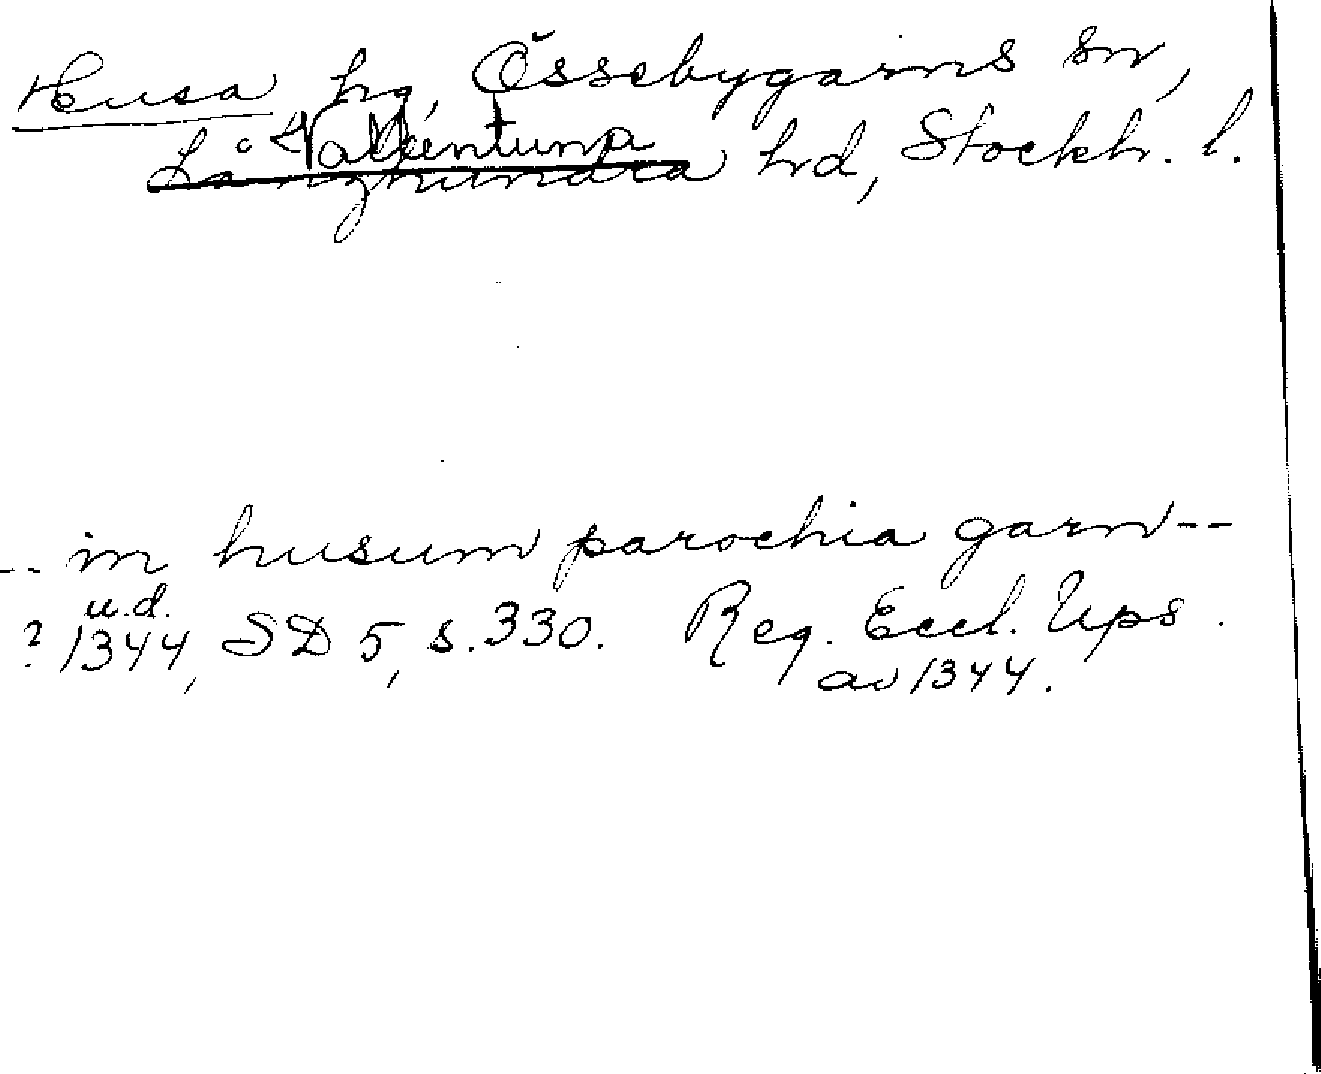 Husa hg, Össebygarns sn,
Vallentuna
Långhundra hrd, Stockh. l.
-- in husum parochia garn --
u.d.
? 1344, SD 5, s. 330. Reg. Eccl. Ups.
av 1344.